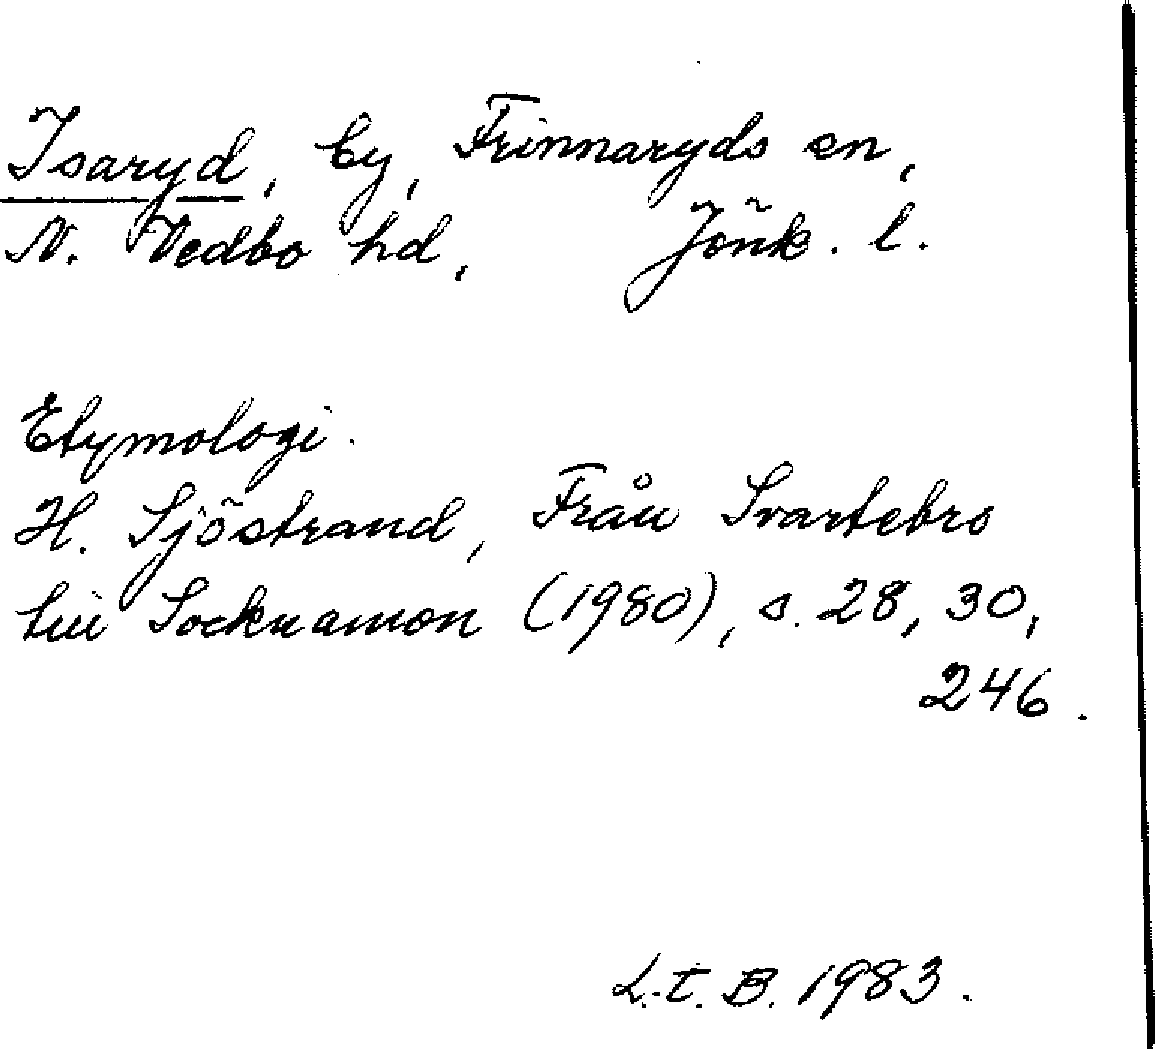 Isaryd, by, Frinnaryds sn,
N. Vedbo hd, Jönk. l.
Etymologi.
H. Sjöstrand, Från Svartebro
till Socknamon (1980), s. 28, 30,
246.
L.-E. B. 1983.